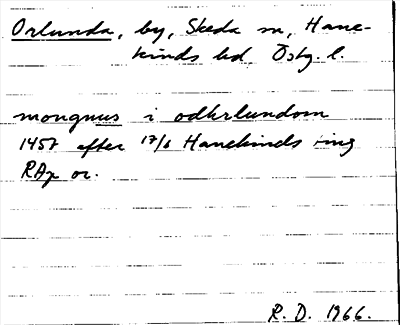 Orlunda, by, Skeda sn, Hane-
kinds hd Östg. l.
mongnus i odhrlundom
1457 efter 17/6 Hanekinds ting
RAp or.
R. D. 1966.